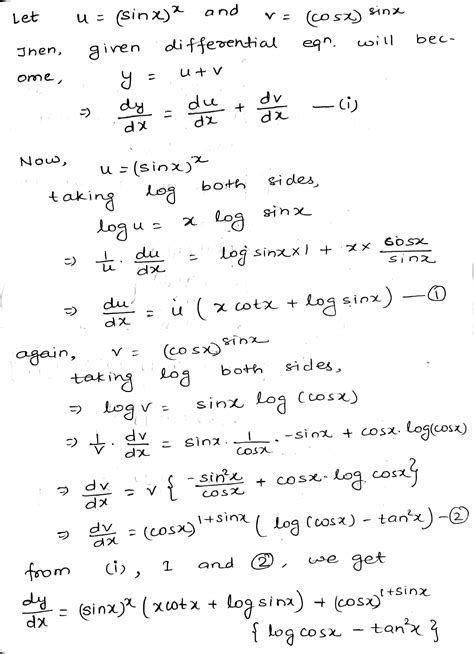 Let u = (sinx)^x and v = (cosx)^sinx
Then, given differential eqn. will bec-
ome, y = u+v
⇒ dy/dx = du/dx + dv/dx —(i)
Now, u = (sinx)^x
taking log both sides,
log u = x log sinx
⇒ 1/u · du/dx = log sinx×1 + x× cosx/sinx
⇒ du/dx = u ( x cotx + log sinx ) — ①
again, v = (cosx)^sinx
taking log both sides,
⇒ log v = sinx log (cosx)
⇒ 1/v · dv/dx = sinx · 1/cosx · -sinx + cosx · log(cosx)
⇒ dv/dx = v { -sin²x/cosx + cosx · log cosx }
⇒ dv/dx = (cosx)^1+sinx ( log (cosx) – tan²x ) – ②
from (i), 1 and ②, we get
dy/dx = (sinx)^x ( x cotx + log sinx ) + (cosx)^1+sinx
{ log cosx – tan²x }